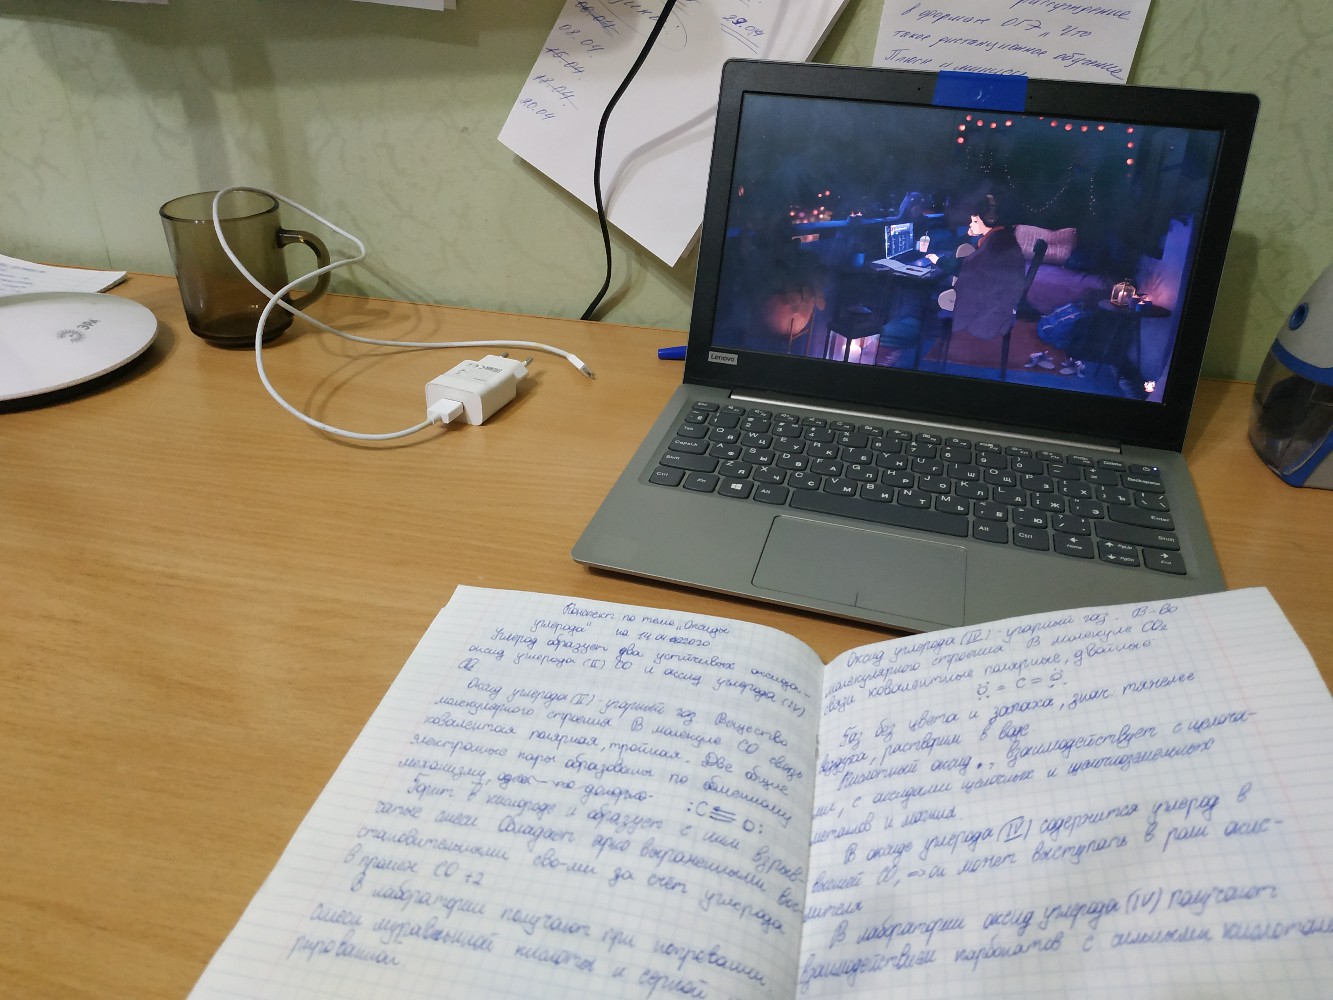 08.04.
15.04.
17.04.
20.04
29.04
рассуждение
в формате ОГЭ „Что
такое дистанционное обучение
Плюсы и минусы
Lenovo
Конспект по теме „Оксиды
углерода" на 14.04.2020
Углерод образует два устойчивых оксида -
оксид углерода (II) CO и оксид углерода (IV)
Оксид углерода (II) - угарный газ. Вещество
молекулярного строения. В молекуле CO связь
ковалентная полярная, тройная. Две общие
электронные пары образованы по обменному
механизму, одна - по донорно-
:C≡O:
Горит в кислороде и образует с ним взрыв-
чатые смеси. Обладает ярко выраженными вос-
становительными св-ми за счёт углерода
в промеж CO +2
В лаборатории получают при нагревании
смеси муравьиной кислоты и серной
рированной.
Оксид углерода (IV) - угарный газ. В-во
молекулярного строения. В молекуле CO₂
связи ковалентные полярные, двойные
:O: = C = :O:
Газ без цвета и запаха, знач тяжелее
воздуха, растворим в воде
Кислотный оксид , взаимодействует с щелоча-
ми, с оксидами щелочных и щелочноземельных
металлов и магния.
В оксиде углерода (IV) содержится углерод в
высшей СО, => он может выступать в роли окис-
лителя
В лаборатории оксид углерода (IV) получают
взаимодействием карбонатов с сильными кислотами